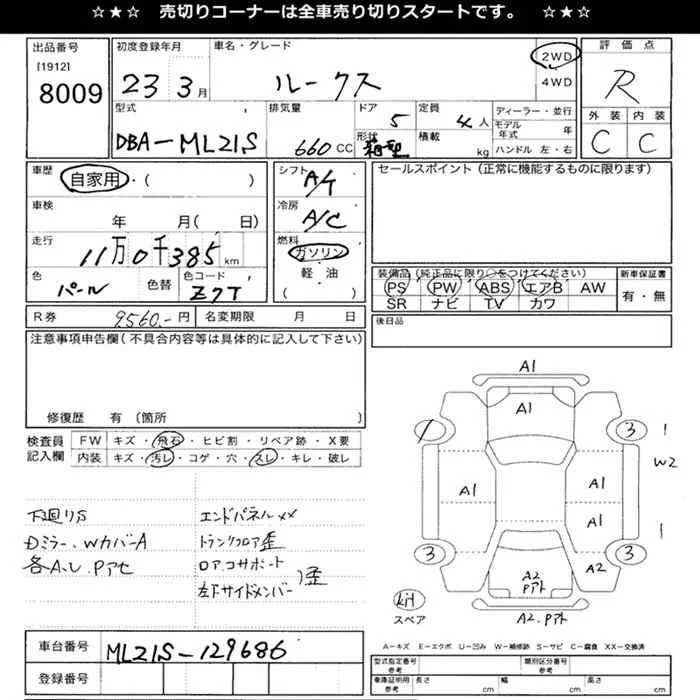 ☆★☆ 売切りコーナーは全車売り切りスタートです。 ☆★☆
出品番号
[1912]
8009
初度登録年月
23 3月
車名・グレード
ルークス
2WD
4WD
評価点
R
外装 内装
C C
型式
DBA-ML21S
排気量
660 CC
ドア
5
形状
箱型
定員
4人
積載
kg
ディーラー・並行
モデル年式 年
ハンドル 左・右
車歴
自家用・( )
シフト
A/T
セールスポイント(正常に機能するものに限ります)
車検
年 月( 日)
冷房
A/C
走行
11万0千385km
燃料
ガソリン
軽油
( )
色
パール
色替
色コード
Z7T
装備品(純正品に限り○をつけてください)
PS PW ABS エアB AW
SR ナビ TV カワ
新車保証書
有・無
R券 9560.-円
名変期限 月 日
後日品
注意事項申告欄(不具合内容等は具体的に記入して下さい)
修復歴 有(箇所 )
検査員記入欄
FW キズ・飛石・ヒビ割・リペア跡・X要
内装 キズ・汚レ・コゲ・穴・スレ・キレ・破レ
下廻りS
Dミラー、WカバーA
各A.U.Pアセ
エンドパネルXX
トランクフロア歪
ロアコサポート
左下サイドメンバー
歪
A1
A1
3
1
W2
A1
A1
A1
1
3
3
A2
A2
Pアト
A2.Pアト
kit
スペア
A-キズ E-エクボ U-凹み W-補修跡 S-サビ C-腐食 XX-交換済
車台番号
ML21S-129686
登録番号
型式指定番号
参考
類別区分番号
参考
車庫証明用
参考
長さ cm
幅 cm
高さ cm